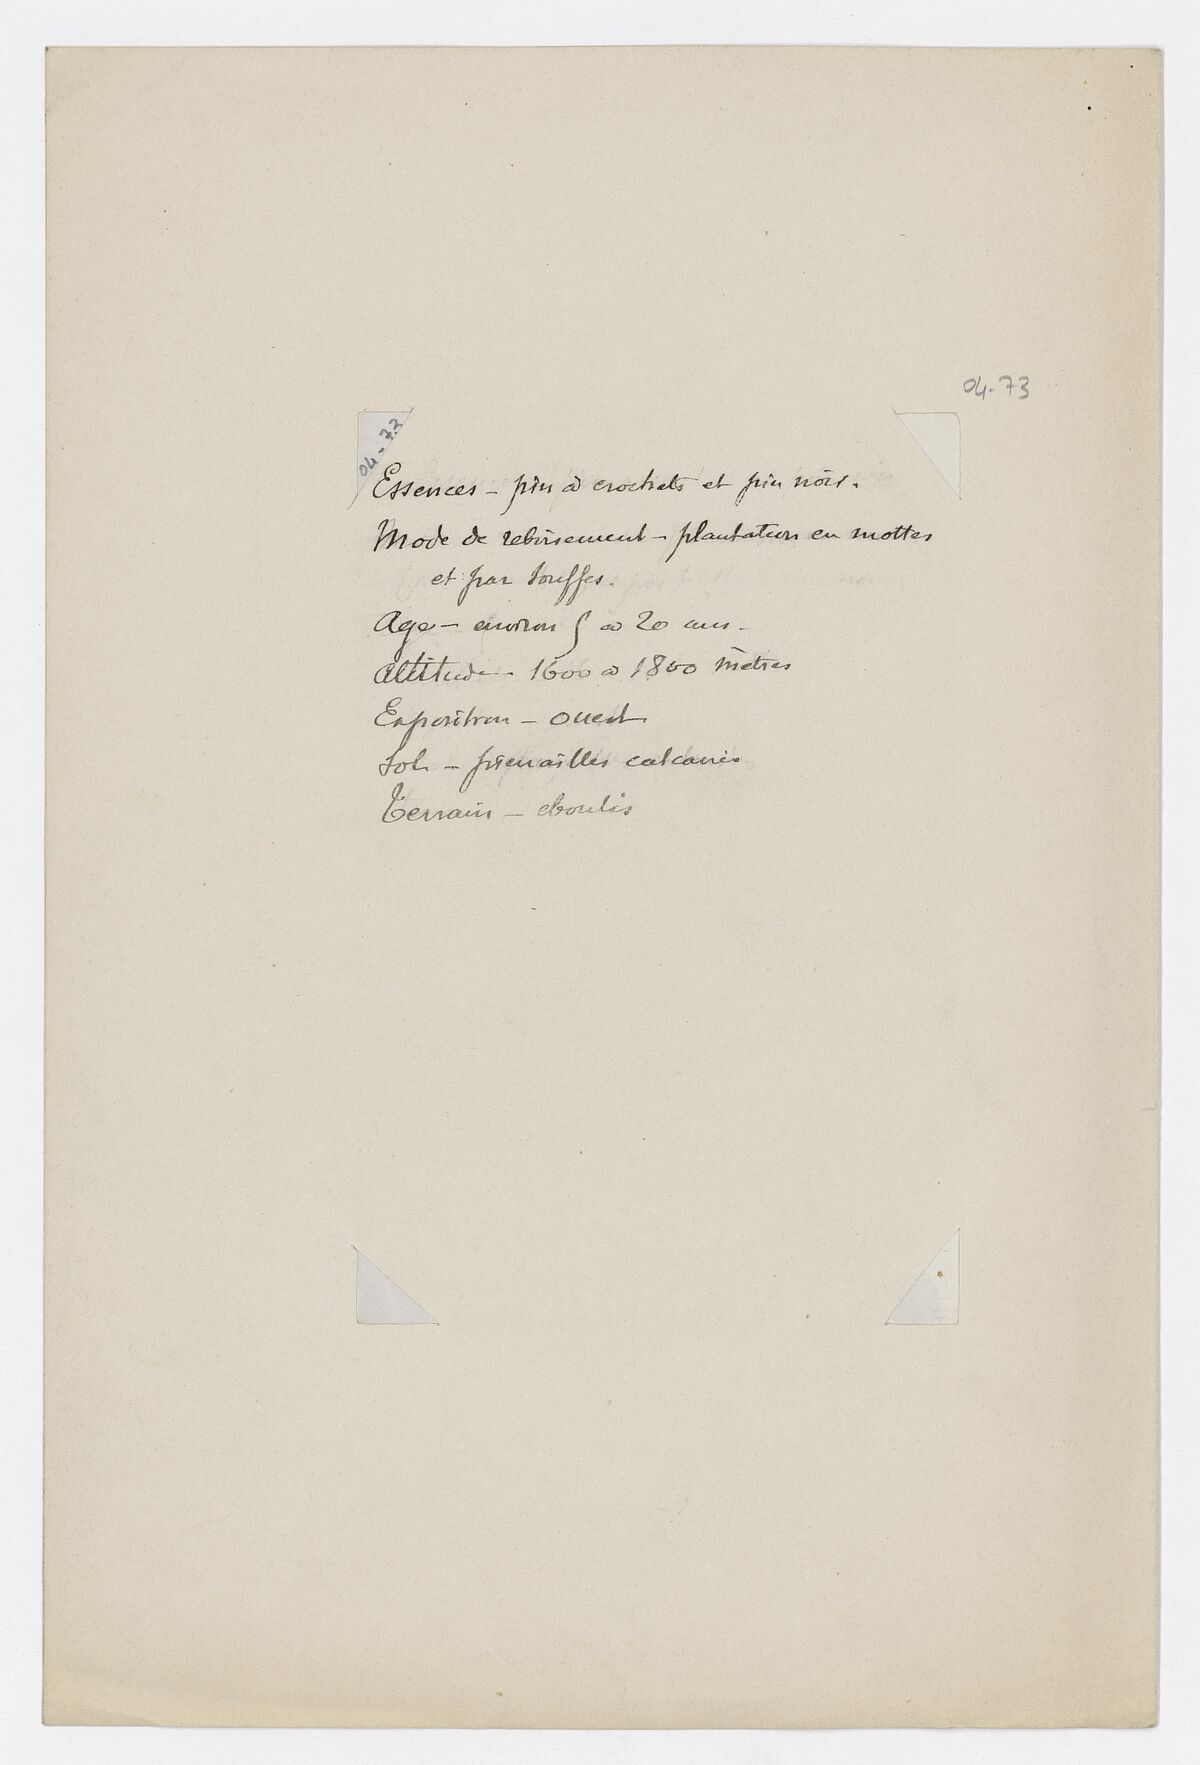 04-73
04-73
Essences - pin à crochets et pin noir.
Mode de reboisement - plantation en mottes
et par touffes.
Age - environ 5 à 20 ans -
Altitude - 1600 à 1800 mètres
Exposition - ouest
Sol - pierrailles calcaires
Terrain - eboulis